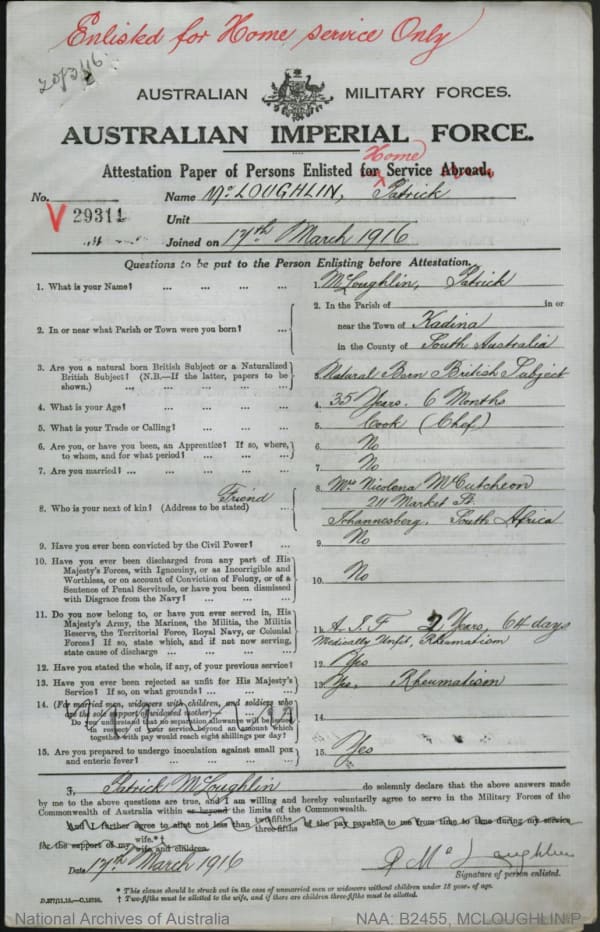 Enlisted for Home service Only
AUSTRALIAN MILITARY FORCES.
AUSTRALIAN IMPERIAL FORCE.
Home
Attestation Paper of Persons Enlisted for Service Abroad.
No. Name McLOUGHLIN, Patrick
V 29311
Unit
Joined on 17th March 1916
Questions to be put to the Person Enlisting before Attestation.
1. What is your Name? ... ... ... ... 1. McLoughlin, Patrick
2. In or near what Parish or Town were you born? ... 2. In the Parish of in or
near the Town of Kadina
in the County of South Australia
3. Are you a natural born British Subject or a Naturalized
British Subject? (N.B.—If the latter, papers to be
shown.) ... ... ... ... 3. Natural Born British Subject
4. What is your Age? ... ... ... ... 4. 35 Years. 6 Months
5. What is your Trade or Calling? ... ... ... 5. Cook (Chef)
6. Are you, or have you been, an Apprentice? If so, where,
to whom, and for what period? ... ... 6. No
7. Are you married? ... ... ... ... 7. No
Friend
8. Who is your next of kin? (Address to be stated) ... 8. Mrs Nicolena McCutcheon
211 Market St.
Johannesberg. South Africa
9. Have you ever been convicted by the Civil Power? ... 9. No
10. Have you ever been discharged from any part of His
Majesty's Forces, with Ignominy, or as Incorrigible and
Worthless, or on account of Conviction of Felony, or of a
Sentence of Penal Servitude, or have you been dismissed
with Disgrace from the Navy? ... ... 10. No
11. Do you now belong to, or have you ever served in, His
Majesty's Army, the Marines, the Militia, the Militia
Reserve, the Territorial Force, Royal Navy, or Colonial
Forces? If so, state which, and if not now serving,
state cause of discharge ... ... ... 11. A.I.F 2 Years, 64 days
Medically Unfit, Rheumatism
12. Have you stated the whole, if any, of your previous service? 12. Yes
13. Have you ever been rejected as unfit for His Majesty's
Service? If so, on what grounds? ... ... 13. Yes, Rheumatism
14. (For married men, widowers with children, and soldiers who
are the sole support of widowed mother)—
Do you understand that no separation allowance will be issued
in respect of your service beyond an amount which
together with pay would reach eight shillings per day? 14.
15. Are you prepared to undergo inoculation against small pox
and enteric fever? ... ... ... 15. Yes
I, Patrick McLoughlin do solemnly declare that the above answers made
by me to the above questions are true, and I am willing and hereby voluntarily agree to serve in the Military Forces of the
Commonwealth of Australia within or beyond the limits of the Commonwealth.
And I further agree to allot not less than two-fifths three-fifths of the pay payable to me from time to time during my service
for the support of my wife.*† wife and children.
Date 17th March 1916 P McLoughlin
Signature of person enlisted.
* This clause should be struck out in the case of unmarried men or widowers without children under 18 years of age.
† Two-fifths must be allotted to the wife, and if there are children three-fifths must be allotted.
National Archives of Australia NAA: B2455, MCLOUGHLIN P